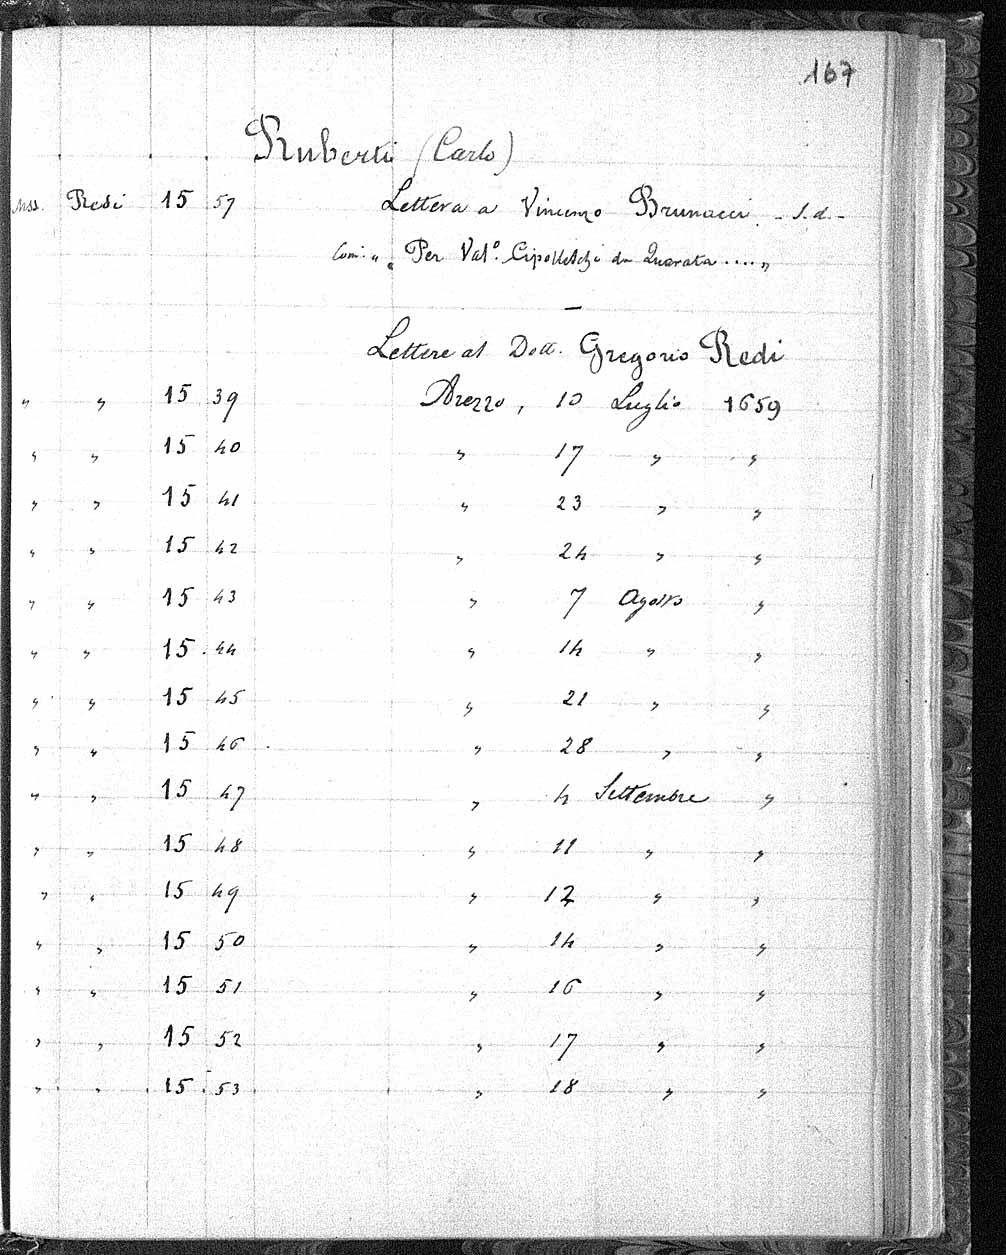 167
Ruberti (Carlo)
Mss. Redi 15 57 Lettera a Vincenzo Brunacci - s.d. -
Com. " " Per Val.º Cipolleschi da Quarata .... "
—
Lettere al Dott. Gregorio Redi
" " 15 39 Arezzo, 10 Luglio 1659
" " 15 40 " 17 " "
" " 15 41 " 23 " "
" " 15 42 " 24 " "
" " 15 43 " 7 Agosto "
" " 15 44 " 14 " "
" " 15 45 " 21 " "
" " 15 46 " 28 " "
" " 15 47 " 4 Settembre "
" " 15 48 " 11 " "
" " 15 49 " 12 " "
" " 15 50 " 14 " "
" " 15 51 " 16 " "
" " 15 52 " 17 " "
" " 15 53 " 18 " "